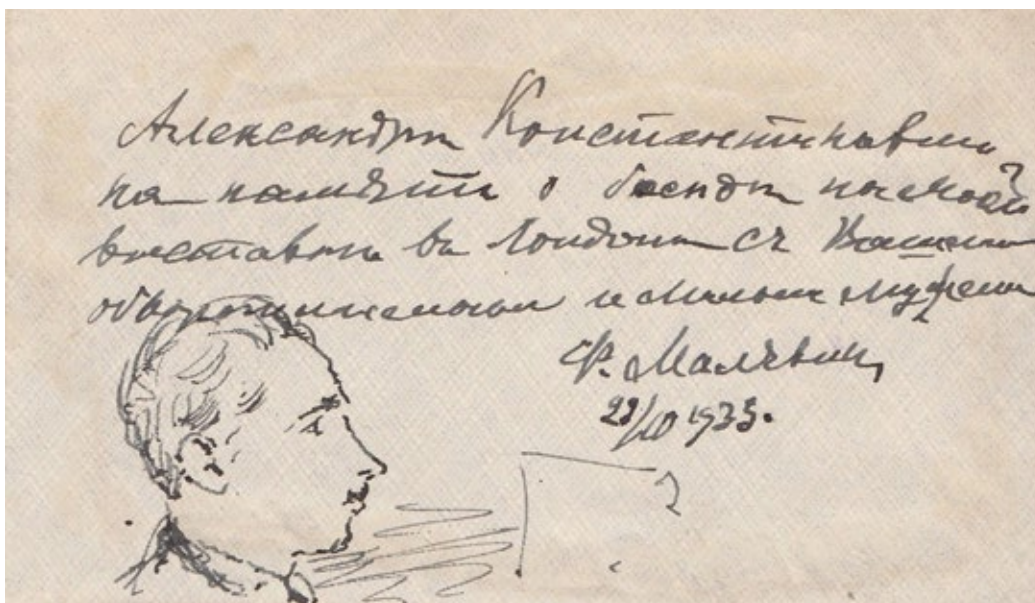 Александрѣ Константиновнѣ
на память о беседѣ на моей
выставкѣ въ Лондонѣ съ Вашемъ
и милымъ мужемъ
Ф. Малявинъ
23/10 1933.
?